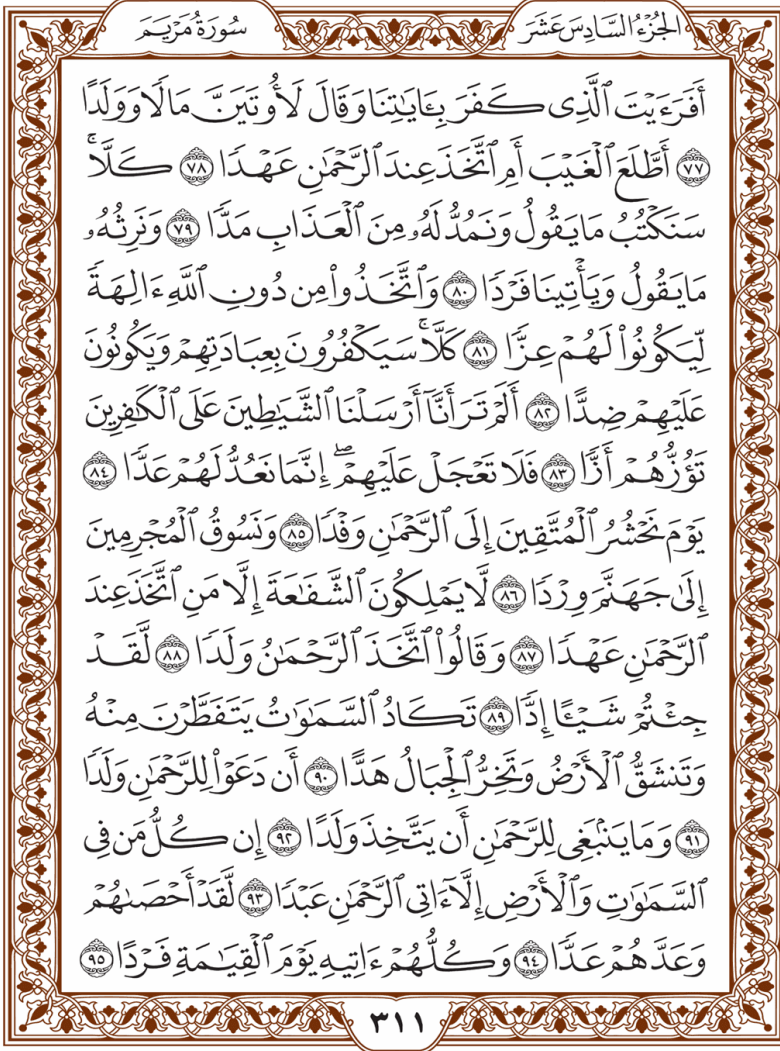 الجُزْءُ السَّادِسَ عَشَرَ
سُورَةُ مَرْيَمَ
أَفَرَءَيْتَ ٱلَّذِى كَفَرَ بِـَٔايَٰتِنَا وَقَالَ لَأُوتَيَنَّ مَالًا وَوَلَدًا
٧٧ أَطَّلَعَ ٱلْغَيْبَ أَمِ ٱتَّخَذَ عِندَ ٱلرَّحْمَٰنِ عَهْدًا ٧٨ كَلَّاۚ
سَنَكْتُبُ مَا يَقُولُ وَنَمُدُّ لَهُۥ مِنَ ٱلْعَذَابِ مَدًّا ٧٩ وَنَرِثُهُۥ
مَا يَقُولُ وَيَأْتِينَا فَرْدًا ٨٠ وَٱتَّخَذُوا۟ مِن دُونِ ٱللَّهِ ءَالِهَةً
لِّيَكُونُوا۟ لَهُمْ عِزًّا ٨١ كَلَّاۚ سَيَكْفُرُونَ بِعِبَادَتِهِمْ وَيَكُونُونَ
عَلَيْهِمْ ضِدًّا ٨٢ أَلَمْ تَرَ أَنَّآ أَرْسَلْنَا ٱلشَّيَٰطِينَ عَلَى ٱلْكَٰفِرِينَ
تَؤُزُّهُمْ أَزًّا ٨٣ فَلَا تَعْجَلْ عَلَيْهِمْۖ إِنَّمَا نَعُدُّ لَهُمْ عَدًّا ٨٤
يَوْمَ نَحْشُرُ ٱلْمُتَّقِينَ إِلَى ٱلرَّحْمَٰنِ وَفْدًا ٨٥ وَنَسُوقُ ٱلْمُجْرِمِينَ
إِلَىٰ جَهَنَّمَ وِرْدًا ٨٦ لَّا يَمْلِكُونَ ٱلشَّفَٰعَةَ إِلَّا مَنِ ٱتَّخَذَ عِندَ
ٱلرَّحْمَٰنِ عَهْدًا ٨٧ وَقَالُوا۟ ٱتَّخَذَ ٱلرَّحْمَٰنُ وَلَدًا ٨٨ لَّقَدْ
جِئْتُمْ شَيْـًٔا إِدًّا ٨٩ تَكَادُ ٱلسَّمَٰوَٰتُ يَتَفَطَّرْنَ مِنْهُ
وَتَنشَقُّ ٱلْأَرْضُ وَتَخِرُّ ٱلْجِبَالُ هَدًّا ٩٠ أَن دَعَوْا۟ لِلرَّحْمَٰنِ وَلَدًا
٩١ وَمَا يَنۢبَغِى لِلرَّحْمَٰنِ أَن يَتَّخِذَ وَلَدًا ٩٢ إِن كُلُّ مَن فِى
ٱلسَّمَٰوَٰتِ وَٱلْأَرْضِ إِلَّآ ءَاتِى ٱلرَّحْمَٰنِ عَبْدًا ٩٣ لَّقَدْ أَحْصَىٰهُمْ
وَعَدَّهُمْ عَدًّا ٩٤ وَكُلُّهُمْ ءَاتِيهِ يَوْمَ ٱلْقِيَٰمَةِ فَرْدًا ٩٥
٣١١